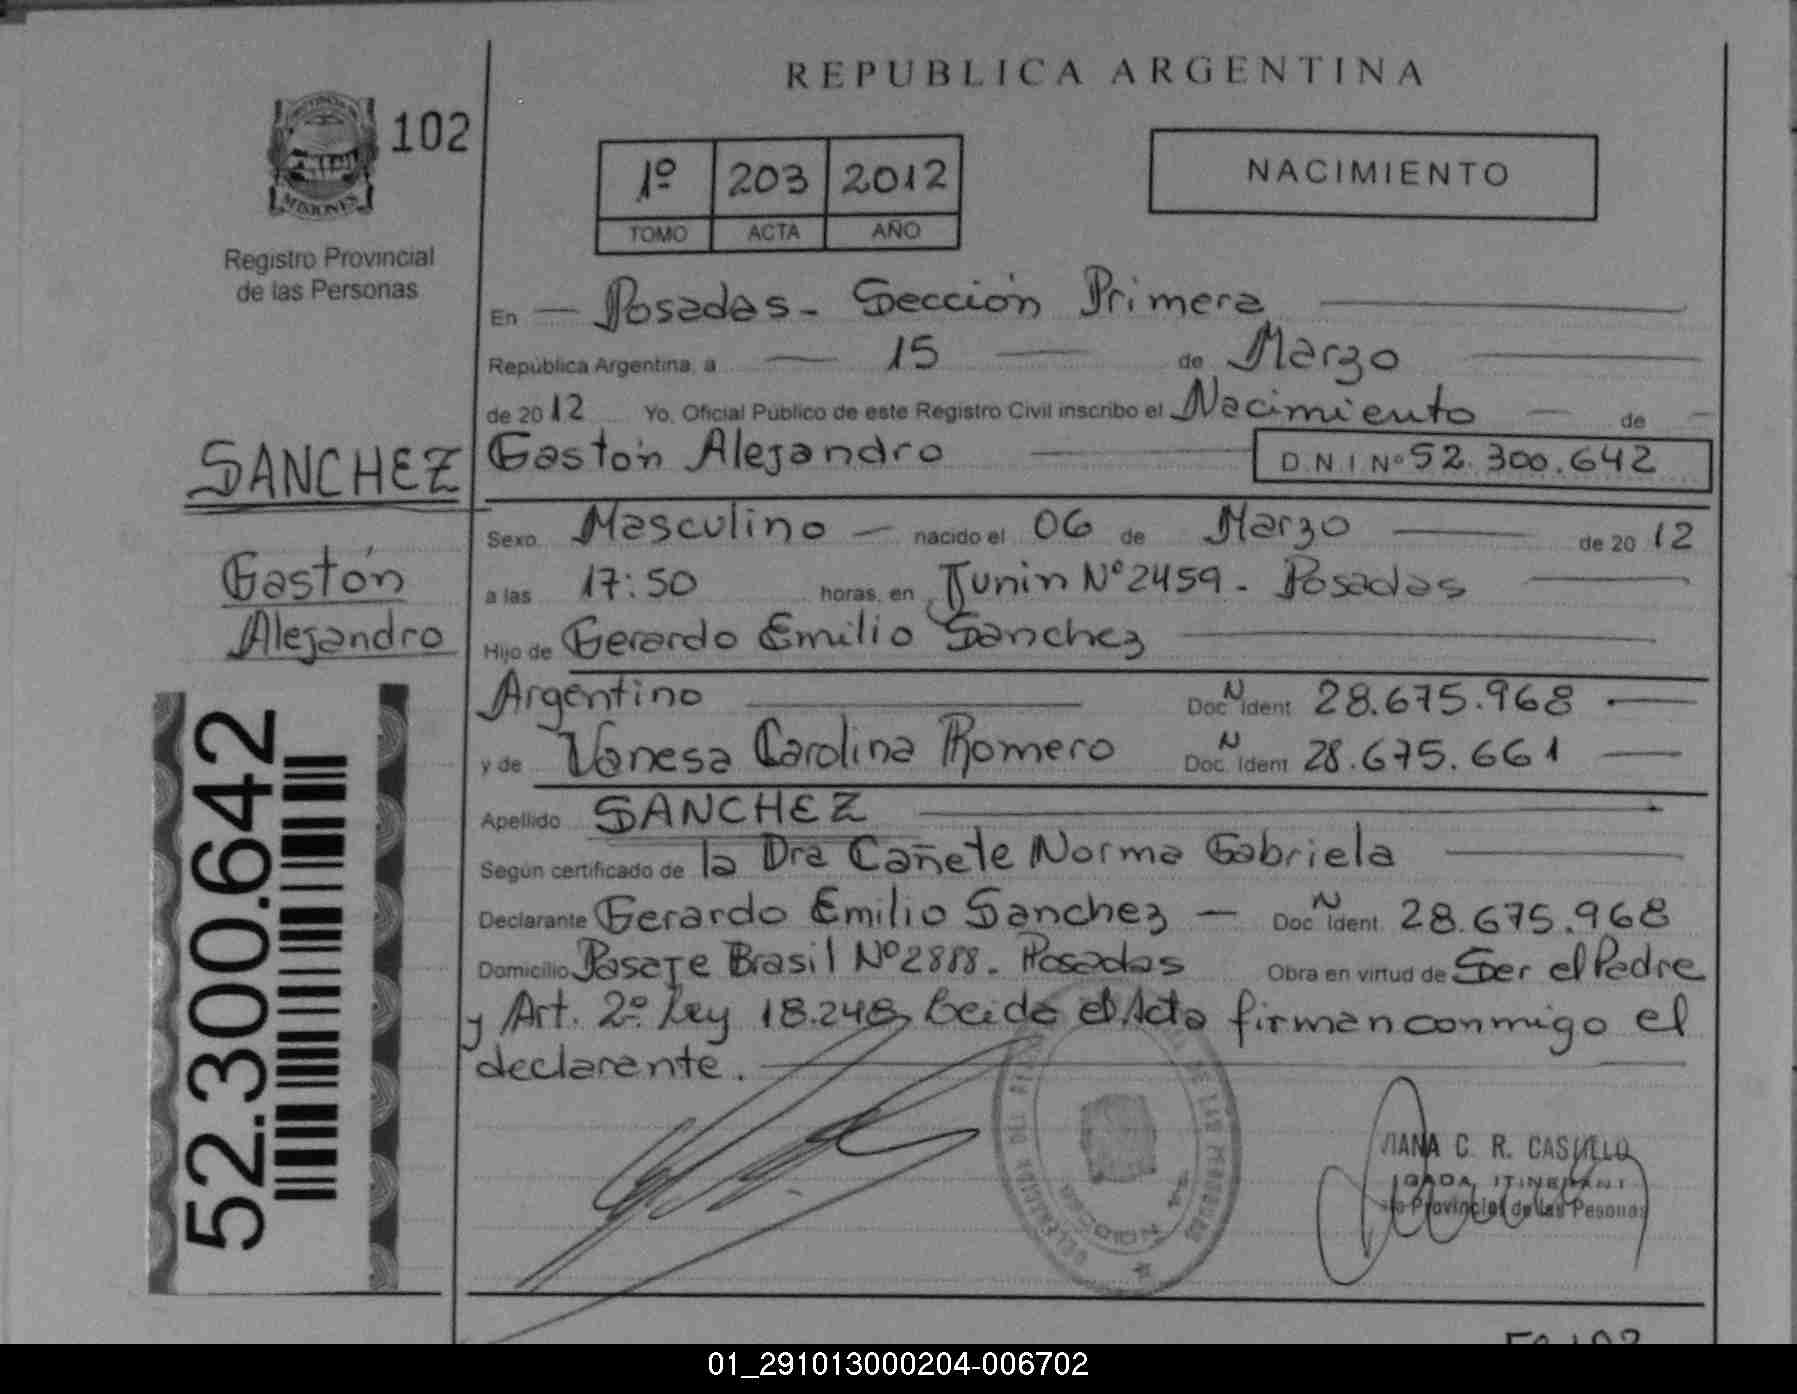 REPUBLICA ARGENTINA
102
MISIONES
Registro Provincial
de las Personas
1º 203 2012
TOMO ACTA AÑO
NACIMIENTO
En Posadas - Sección Primera
República Argentina, a 15 de Marzo
de 2012 Yo, Oficial Público de este Registro Civil inscribo el Nacimiento de
SANCHEZ
Gastón Alejandro D.N.I Nº 52.300.642
Gastón
Alejandro
Sexo Masculino nacido el 06 de Marzo de 2012
a las 17:50 horas, en Junin Nº 2459 - Posadas
Hijo de Gerardo Emilio Sanchez
Argentino Doc N Ident 28.675.968
y de Vanesa Carolina Romero Doc. N Ident 28.675.661
Apellido SANCHEZ
Según certificado de la Dra Cañete Norma Gabriela
Declarante Gerardo Emilio Sanchez Doc N Ident. 28.675.968
Domicilio Pasaje Brasil Nº 2888 - Posadas Obra en virtud de Ser el Padre
y Art. 2º Ley 18.248, Leida el Acta firman conmigo el
declarante.
52.300.642
C. R. CASTILLO
Provincial de las Pesonas
01_291013000204-006702